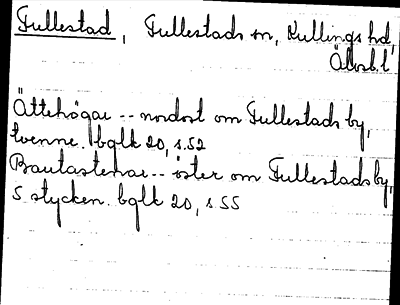 Fullestad, Fullestads sn, Kullings hd,
Älvsb.l
Ättehögar -- nordost om Fullestads by,
tvenne. bglk 20, s.52
Bautastenar -- öster om Fullestads by,
5 stycken. bglk 20, s 55